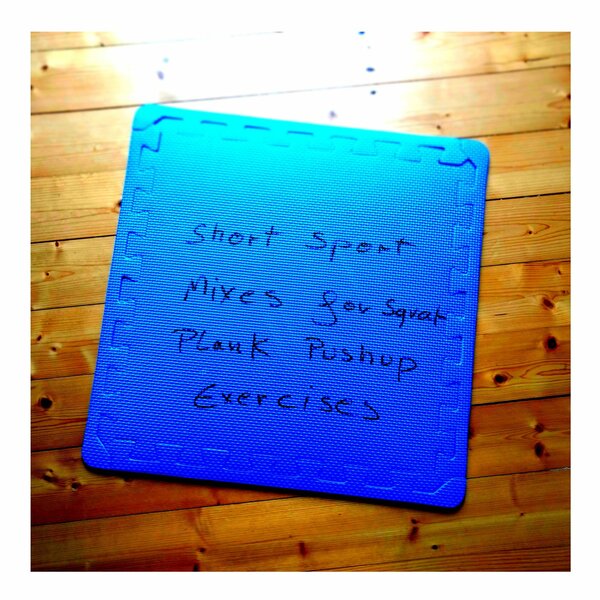 Short Sport
Mixes for Squat
Plank Pushup
Exercises